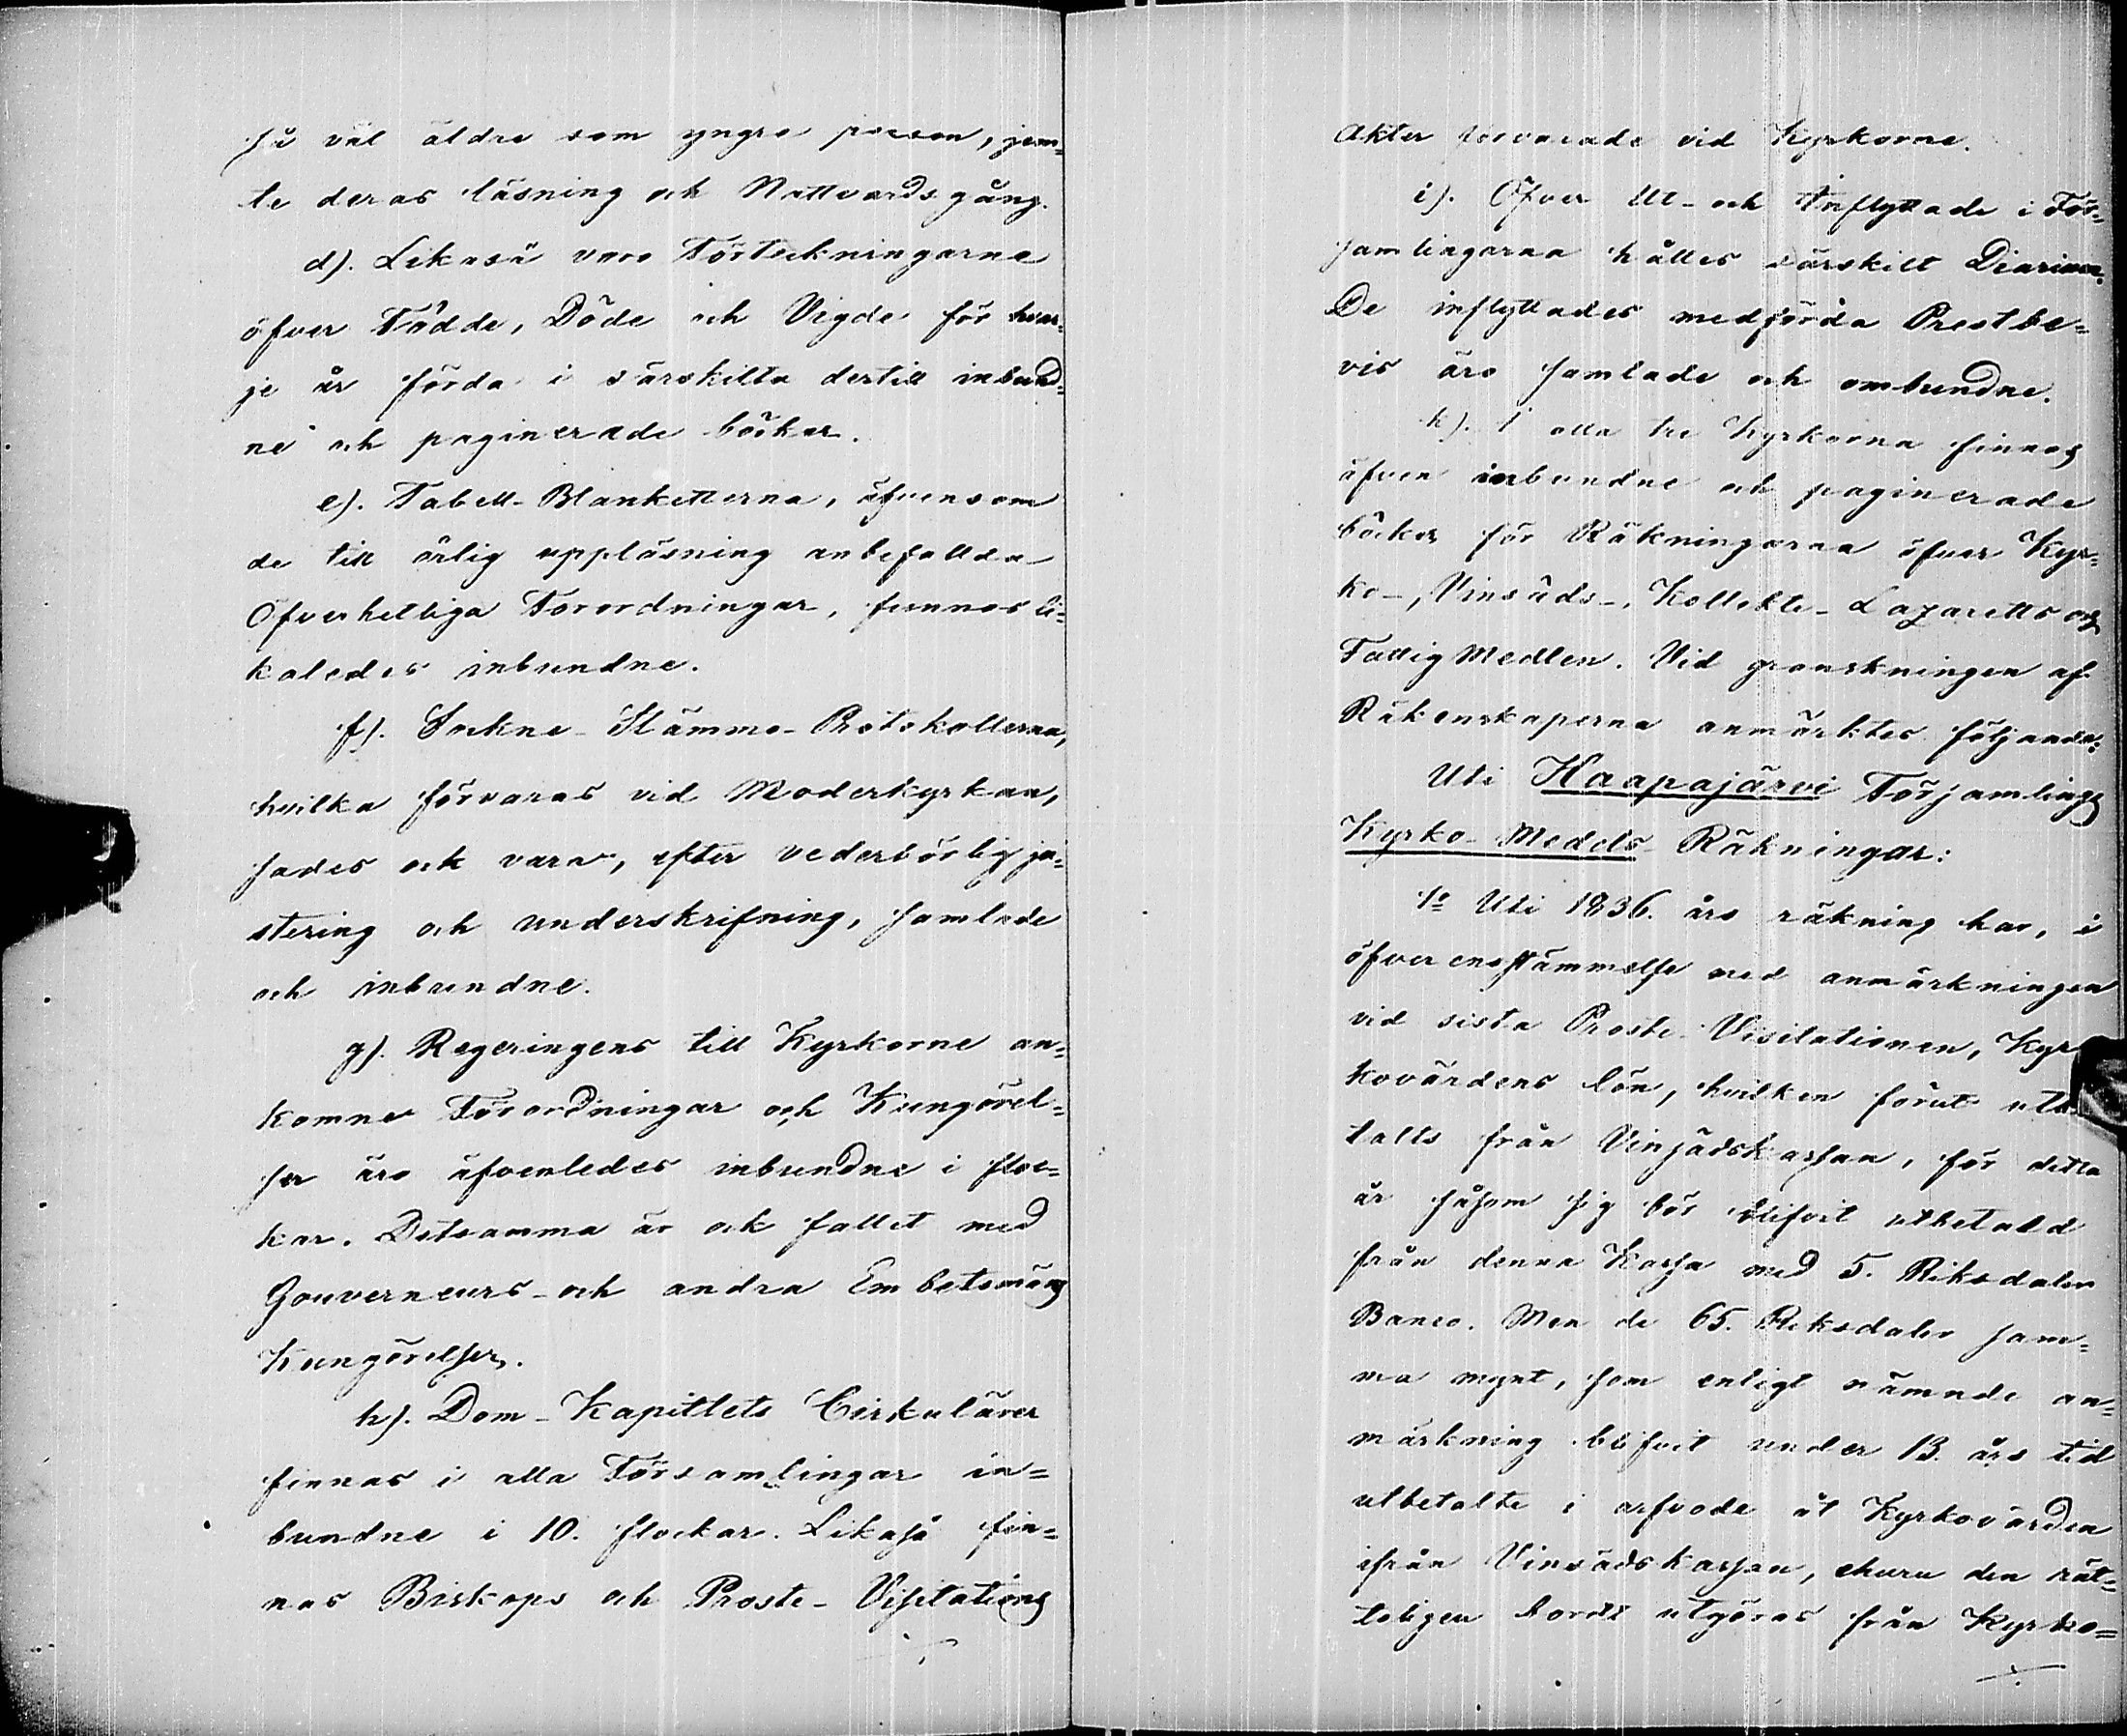 så väl äldre som yngre person, jem=
te deras läsning och Nattvardsgång.
d). Likaså voro Förteckningarne
öfver Födde, Döde och Vigde för hvar=
je år förda i särskilta dertill inbund=
ne och paginerade böcker.
e). Tabell-Blanketterna, äfvensom
de till årlig uppläsning anbefallda
Öfverhetliga Förordningar, funnos li=
kaledes inbundne.
f). Sockne-Stämmo-Protokollerna,
hvilka förvaras vid Moderkyrkan,
sades ock vara, efter vederbörlig ju=
stering och underskrifning, samlade
och inbundne.
g). Regeringens till Kyrkorne an=
komne Förordningar och Kungörel=
ser äro äfvenledes inbundne i floc=
kar. Detsamma är ock fallet med
Gouverneurs- och andra Embetsmäns
Kungörelser.
h). Dom-Kapitlets Cirkulärer
finnas i alla Församlingar in=
bundne i 10. flockar. Likaså fin=
nas Biskops och Proste-Visitations
Akter förvarade vid Kyrkorne.
i). Öfver Ut- och Inflyttade i För=
samlingarna hålles särskilt Diarium.
De inflyttades medförda Prestbe=
vis äro samlade och ombundne.
k). I alla tre Kyrkorna finnas
äfven inbundne och paginerade
böcker för Räkningarna öfver Kyr=
ko-, Vinsäds-, Kollekte- Lazaretts och
Fattig Medlen. Vid granskningen af
Räkenskaperna anmärktes följande:
Uti Haapajärvi Församlings
Kyrko-Medels Räkningar:
1o Uti 1836. års räkning har, i
öfverensstämmelse med anmärkningen
vid sista Proste-Visitationen, Kyr
kovärdens lön, hvilken förut utbe
talts från Vinsädskassan, för detta
år såsom sig bör blifvit utbetald
från denna Kassa med 5. Riksdaler
Banco. Men de 65. Riksdaler sam=
ma mynt, som enligt nämnde an=
märkning blifvit under 13. års tid
utbetalte i arfvode åt Kyrkovärden
ifrån Vinsädskassan, ehuru den rät=
teligen bordt utgöras från Kyrko=